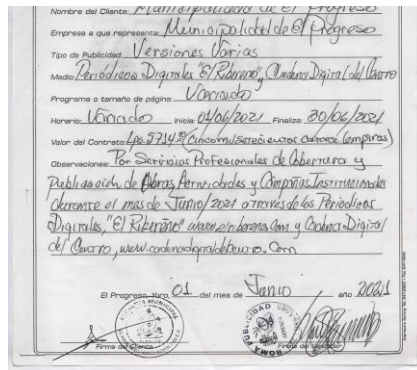 Nombre del Cliente: Municipalidad de El Progreso
Empresa a que representa: Municipalidad de El Progreso
Tipo de Publicidad Versiones Varias
Medio: Periódicos Digitales "El Ribereño", y Cadena Digital del Centro
Programa o tamaño de página: Variado
Horario: Variado Inicia: 01/06/2021 Finaliza: 30/06/2021
Valor del Contrato: Lps. 5714 (Cinco mil setecientos catorce lempiras)
Observaciones: Por Servicios Profesionales de Cobertura y
Publicación de Obras Actividades y Campañas Institucionales
durante el mes de Junio/2021 a través de los Periódicos
Digitales, "El Ribereño" y Cadena Digital
del Centro,
El Progreso, Yoro, 01 del mes de Junio año 2021
Firma de Cliente Firma de